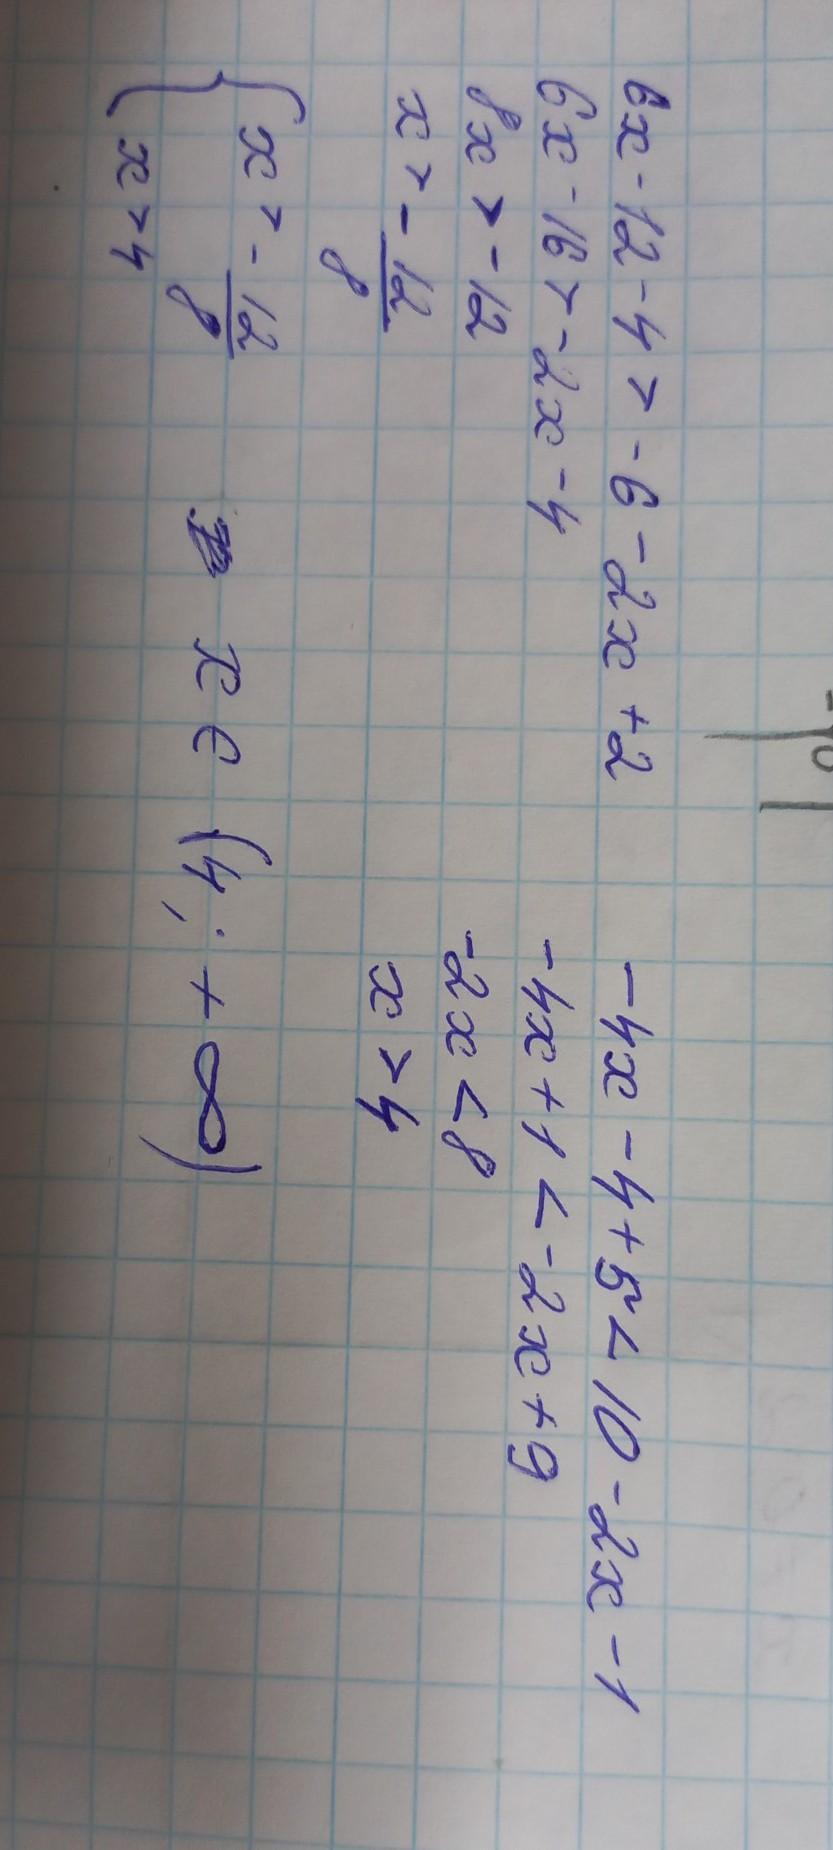 6x-12-4>-6-2x+2
6x-16>-2x-4
8x>-12
x>-12/8
-4x-4+5<10-2x-1
-4x+1<-2x+9
-2x<8
x>4
{x>-12/8
{x>4
x∈(4;+∞)